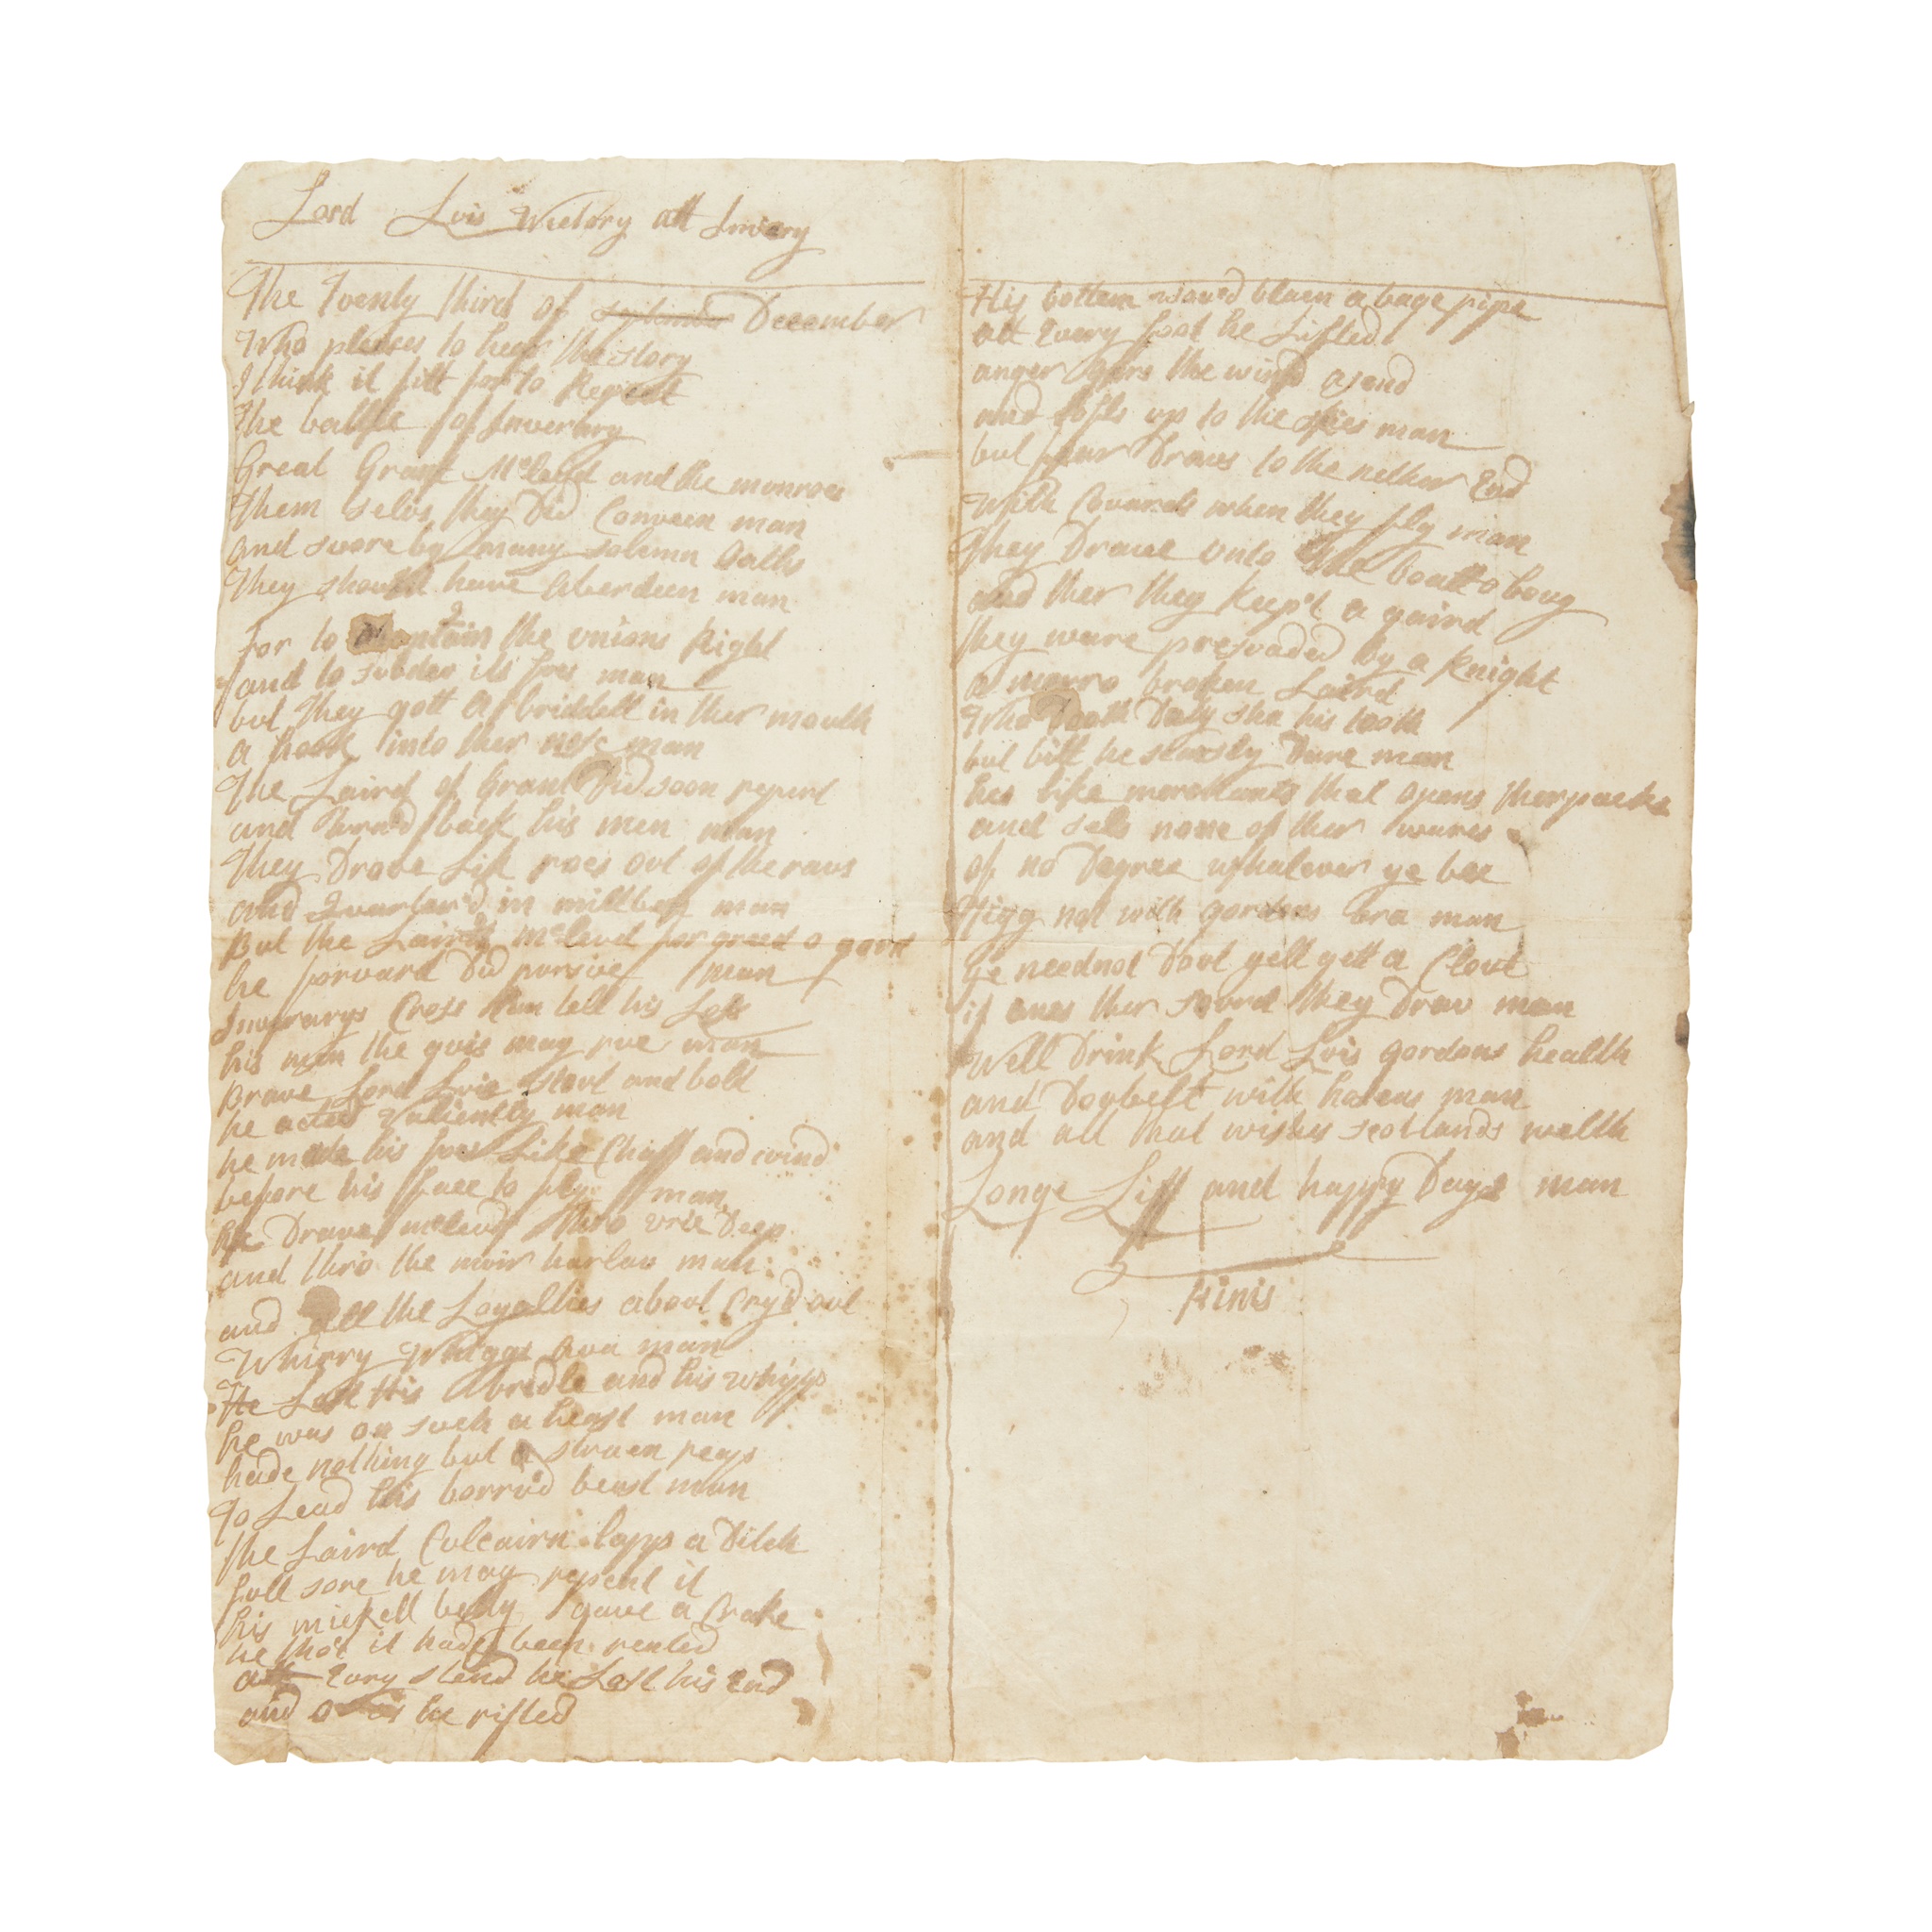 Lord Luis Wictory att Invrery
The Tventy third of september December
Who pleses to hear the story
I think it fitt for to Repeat
The battle of Inverury
Great Grant McLeud and the monroes
Them selvs they Did Conveen man
and svore by many solemn oaths
They should have Aberdeen man
for to mantain the unions Right
and to subdue its foes man
but they gott a briddell in ther mouth
a hook into ther nose man
The Laird of Grant Did soon repent
and Turn'd back his men man
They Drove Lik roes out of the raus
and Quarter'd in millben man
But the Laird McLeud for greed o gove
he forvard Did pursive man
Inverurys Cross kan tell his Loss
his men the guis may rue man
Brave Lord Luis stout and bold
he acted valiently man
he made his foes Like Chaff and wind
before his face to fly man
he Drave mcleud thro urie Deep
and thro the muir harlau man
and all the Loyallties about Cry'd out
Whirry Whiggs Ava man
He Lost His bridle and his whipp
he was on such a heast man
hade nothing but a struen reap
To Lead his borru'd beast man
The Laird Culcairn lapp a Ditch
full sore he may repent it
his mickell belly gave a Crake
he tho't it had been rented
att Evry stend he Lost his End
and he rifted
His bottem wou'd blaen a bage pipe
att Every foot he Lifted
anger gars the wind asend
and lofts up to the skies man
but fear Draws to the nether End
With Couards when they fly man
They Drave unto the boatt o boug
and ther they keep't a gaird
they ware presvaded by a knight
a monro broken Laird
Who Doath Daly sha his tooth
but bitt he skarsly Dare man
hes like merchants that opens ther packs
and sels none of ther wares
of no Degree whatever ye bee
Figg not with gordons bra man
ye neednot Dout yell gett a Clout
if anes ther sourd they Drau man
Well Drink Lord Luis gordons health
and Doubelt with hozeus man
and all that wishes scotlands wellth
Longe Liff and happy Days man
Finis